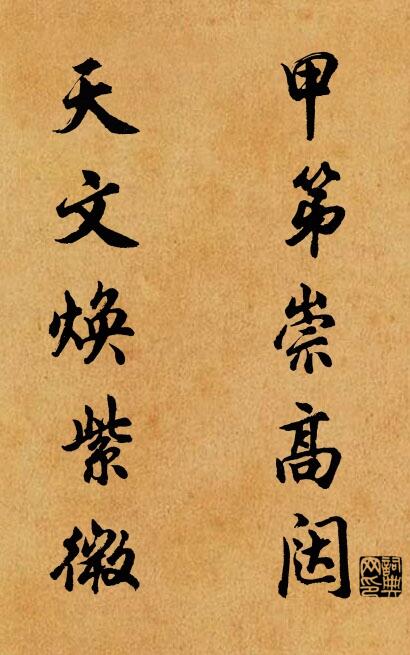 甲第崇高闳
天文焕紫微
詞典网印